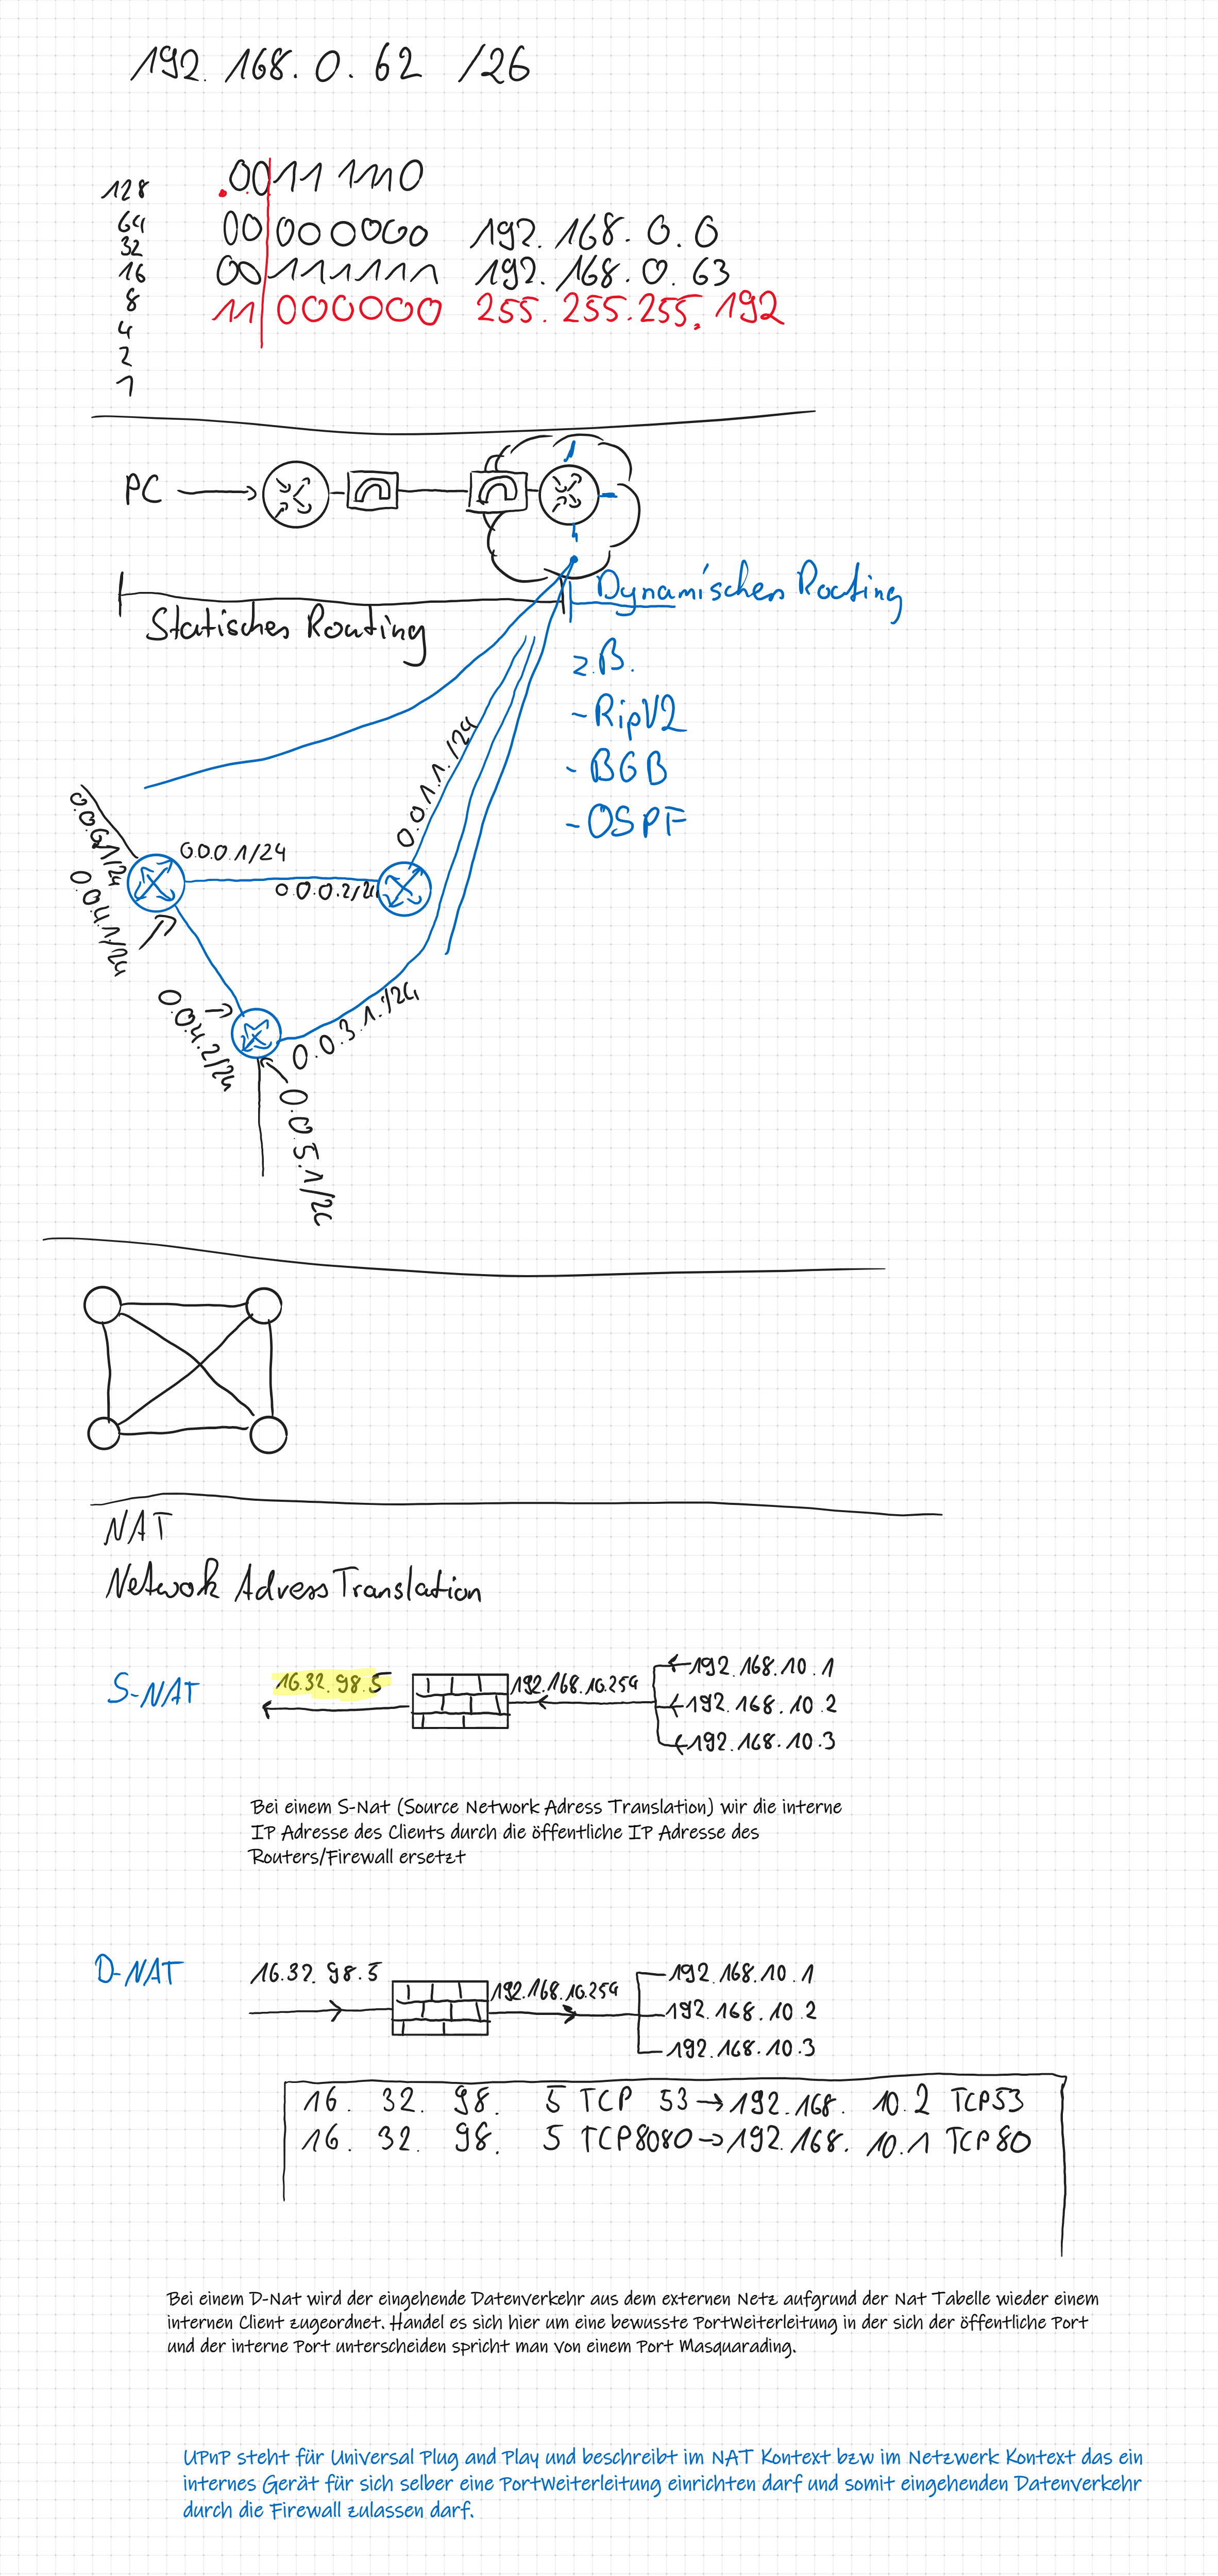 192.168.0.62 /26
128
64
32
16
8
4
2
1
.0011 1110
00 000000 192.168.0.0
00 111111 192.168.0.63
11 000000 255.255.255.192
PC
Statisches Routing
Dynamisches Routing
z.B.
- RipV2
- BGB
- OSPF
0.0.1.1./24
0.0.0.1/24
0.0.0.2/24
0.0.6.1/24
0.0.4.1/24
0.0.4.2/24
0.0.3.1./24
0.0.5.1/24
NAT
Network Adress Translation
S-NAT
16.32.98.5
192.168.10.254
192.168.10.1
192.168.10.2
192.168.10.3
Bei einem S-Nat (Source Network Adress Translation) wir die interne
IP Adresse des Clients durch die öffentliche IP Adresse des
Routers/Firewall ersetzt
D-NAT
16.32.98.5
192.168.10.254
192.168.10.1
192.168.10.2
192.168.10.3
16. 32. 98. 5 TCP 53→192.168. 10.2 TCP53
16. 32. 98. 5 TCP8080→192.168. 10.1 TCP80
Bei einem D-Nat wird der eingehende Datenverkehr aus dem externen Netz aufgrund der Nat Tabelle wieder einem
internen Client zugeordnet. Handel es sich hier um eine bewusste PortWeiterleitung in der sich der öffentliche Port
und der interne Port unterscheiden spricht man von einem Port Masquarading.
UPnP steht für Universal Plug and Play und beschreibt im NAT Kontext bzw im Netzwerk Kontext das ein
internes Gerät für sich selber eine PortWeiterleitung einrichten darf und somit eingehenden Datenverkehr
durch die Firewall zulassen darf.